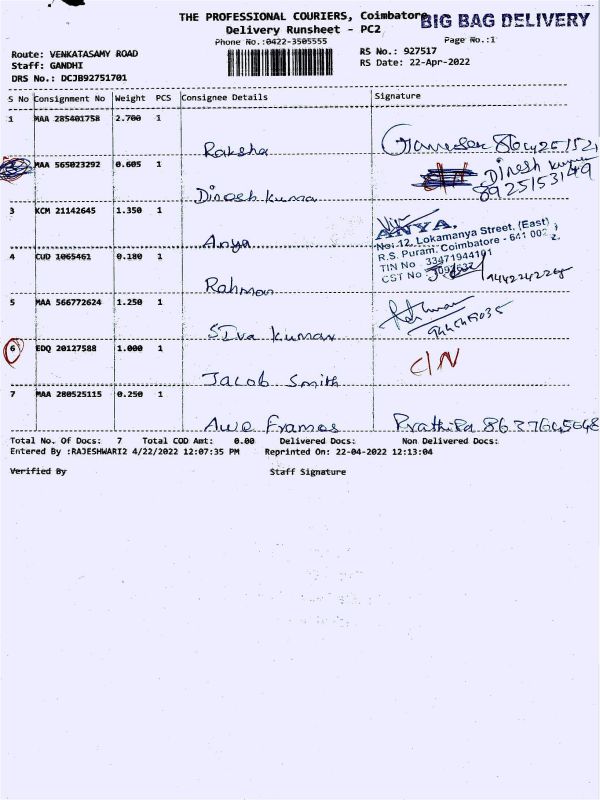 THE PROFESSIONAL COURIERS, Coimbatore
BIG BAG DELIVERY
Delivery Runsheet - PC2
Phone No.:0422-3505555
Page No.:1
Route: VENKATASAMY ROAD
RS No.: 927517
Staff: GANDHI
RS Date: 22-Apr-2022
DRS No.: DCJB92751701
S No Consignment No Weight PCS Consignee Details Signature
1 MAA 285401758 2.700 1
Raksha
MAA 565023292 0.605 1
Dinesh kumar
8925153149
Dinesh kumar
3 KCM 21142645 1.350 1
Anya
ANYA.
No: 12, Lokamanya Street, (East)
R.S. Puram, Coimbatore - 641 002
TIN No : 33471944191
CST No :
4 CUD 1065461 0.180 1
Rahman
9442242265
5 MAA 566772624 1.250 1
Siva kumar
6 EDQ 20127588 1.000 1
C/N
Jacob Smith
7 MAA 280525115 0.250 1
Awe Frames
Prathipa 8637645648
Total No. Of Docs: 7 Total COD Amt: 0.00 Delivered Docs: Non Delivered Docs:
Entered By :RAJESHWARI2 4/22/2022 12:07:35 PM Reprinted On: 22-04-2022 12:13:04
Verified By Staff Signature